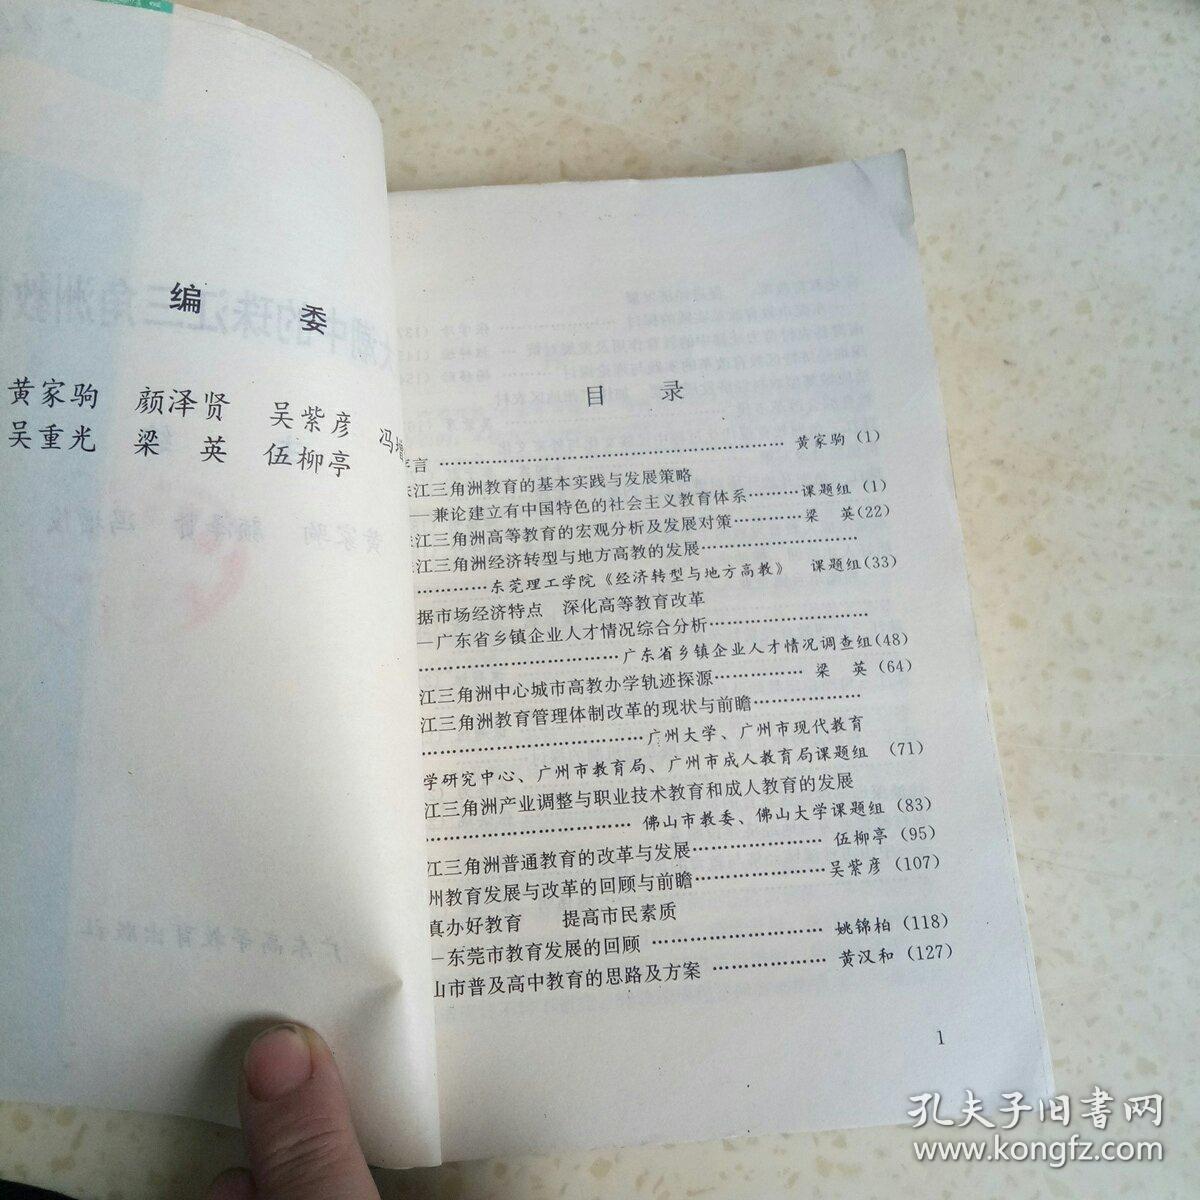 编 委
黄家驹 颜泽贤 吴紫彦 冯增
吴重光 梁 英 伍柳亭
目 录
言 …… 黄家驹 (1)
江三角洲教育的基本实践与发展策略
—兼论建立有中国特色的社会主义教育体系………课题组 (1)
江三角洲高等教育的宏观分析及发展对策…………梁 英(22)
江三角洲经济转型与地方高教的发展……………………
…………东莞理工学院《经济转型与地方高教》 课题组(33)
据市场经济特点 深化高等教育改革
—广东省乡镇企业人才情况综合分析……………………
……………………………广东省乡镇企业人才情况调查组(48)
江三角洲中心城市高教办学轨迹探源…………… 梁 英(64)
江三角洲教育管理体制改革的现状与前瞻………………
………………………………广州大学、广州市现代教育
学研究中心、广州市教育局、广州市成人教育局课题组 (71)
江三角洲产业调整与职业技术教育和成人教育的发展
…………………………… 佛山市教委、佛山大学课题组 (83)
江三角洲普通教育的改革与发展………………… 伍柳亭 (95)
州教育发展与改革的回顾与前瞻…………………吴紫彦 (107)
真办好教育 提高市民素质
—东莞市教育发展的回顾 ……………………… 姚锦柏 (118)
山市普及高中教育的思路及方案 ……………… 黄汉和 (127)
1
孔夫子旧书网
www.kongfz.com